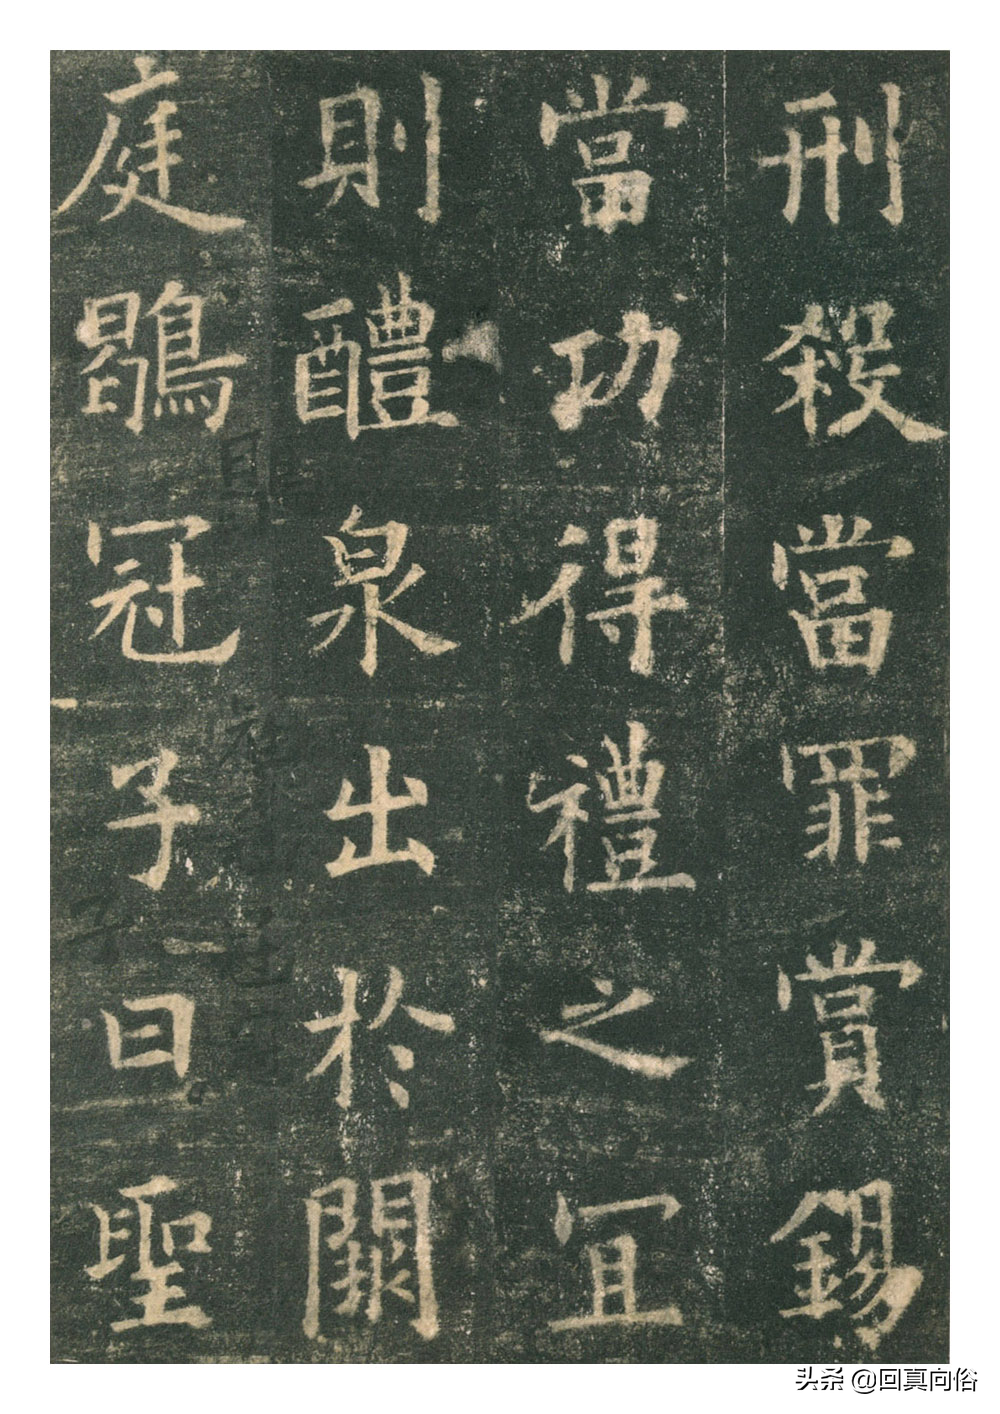 刑殺當罪賞錫
當功得禮之冝
則醴泉出於闕
庭鶡冠子曰聖
头条 @回真向俗